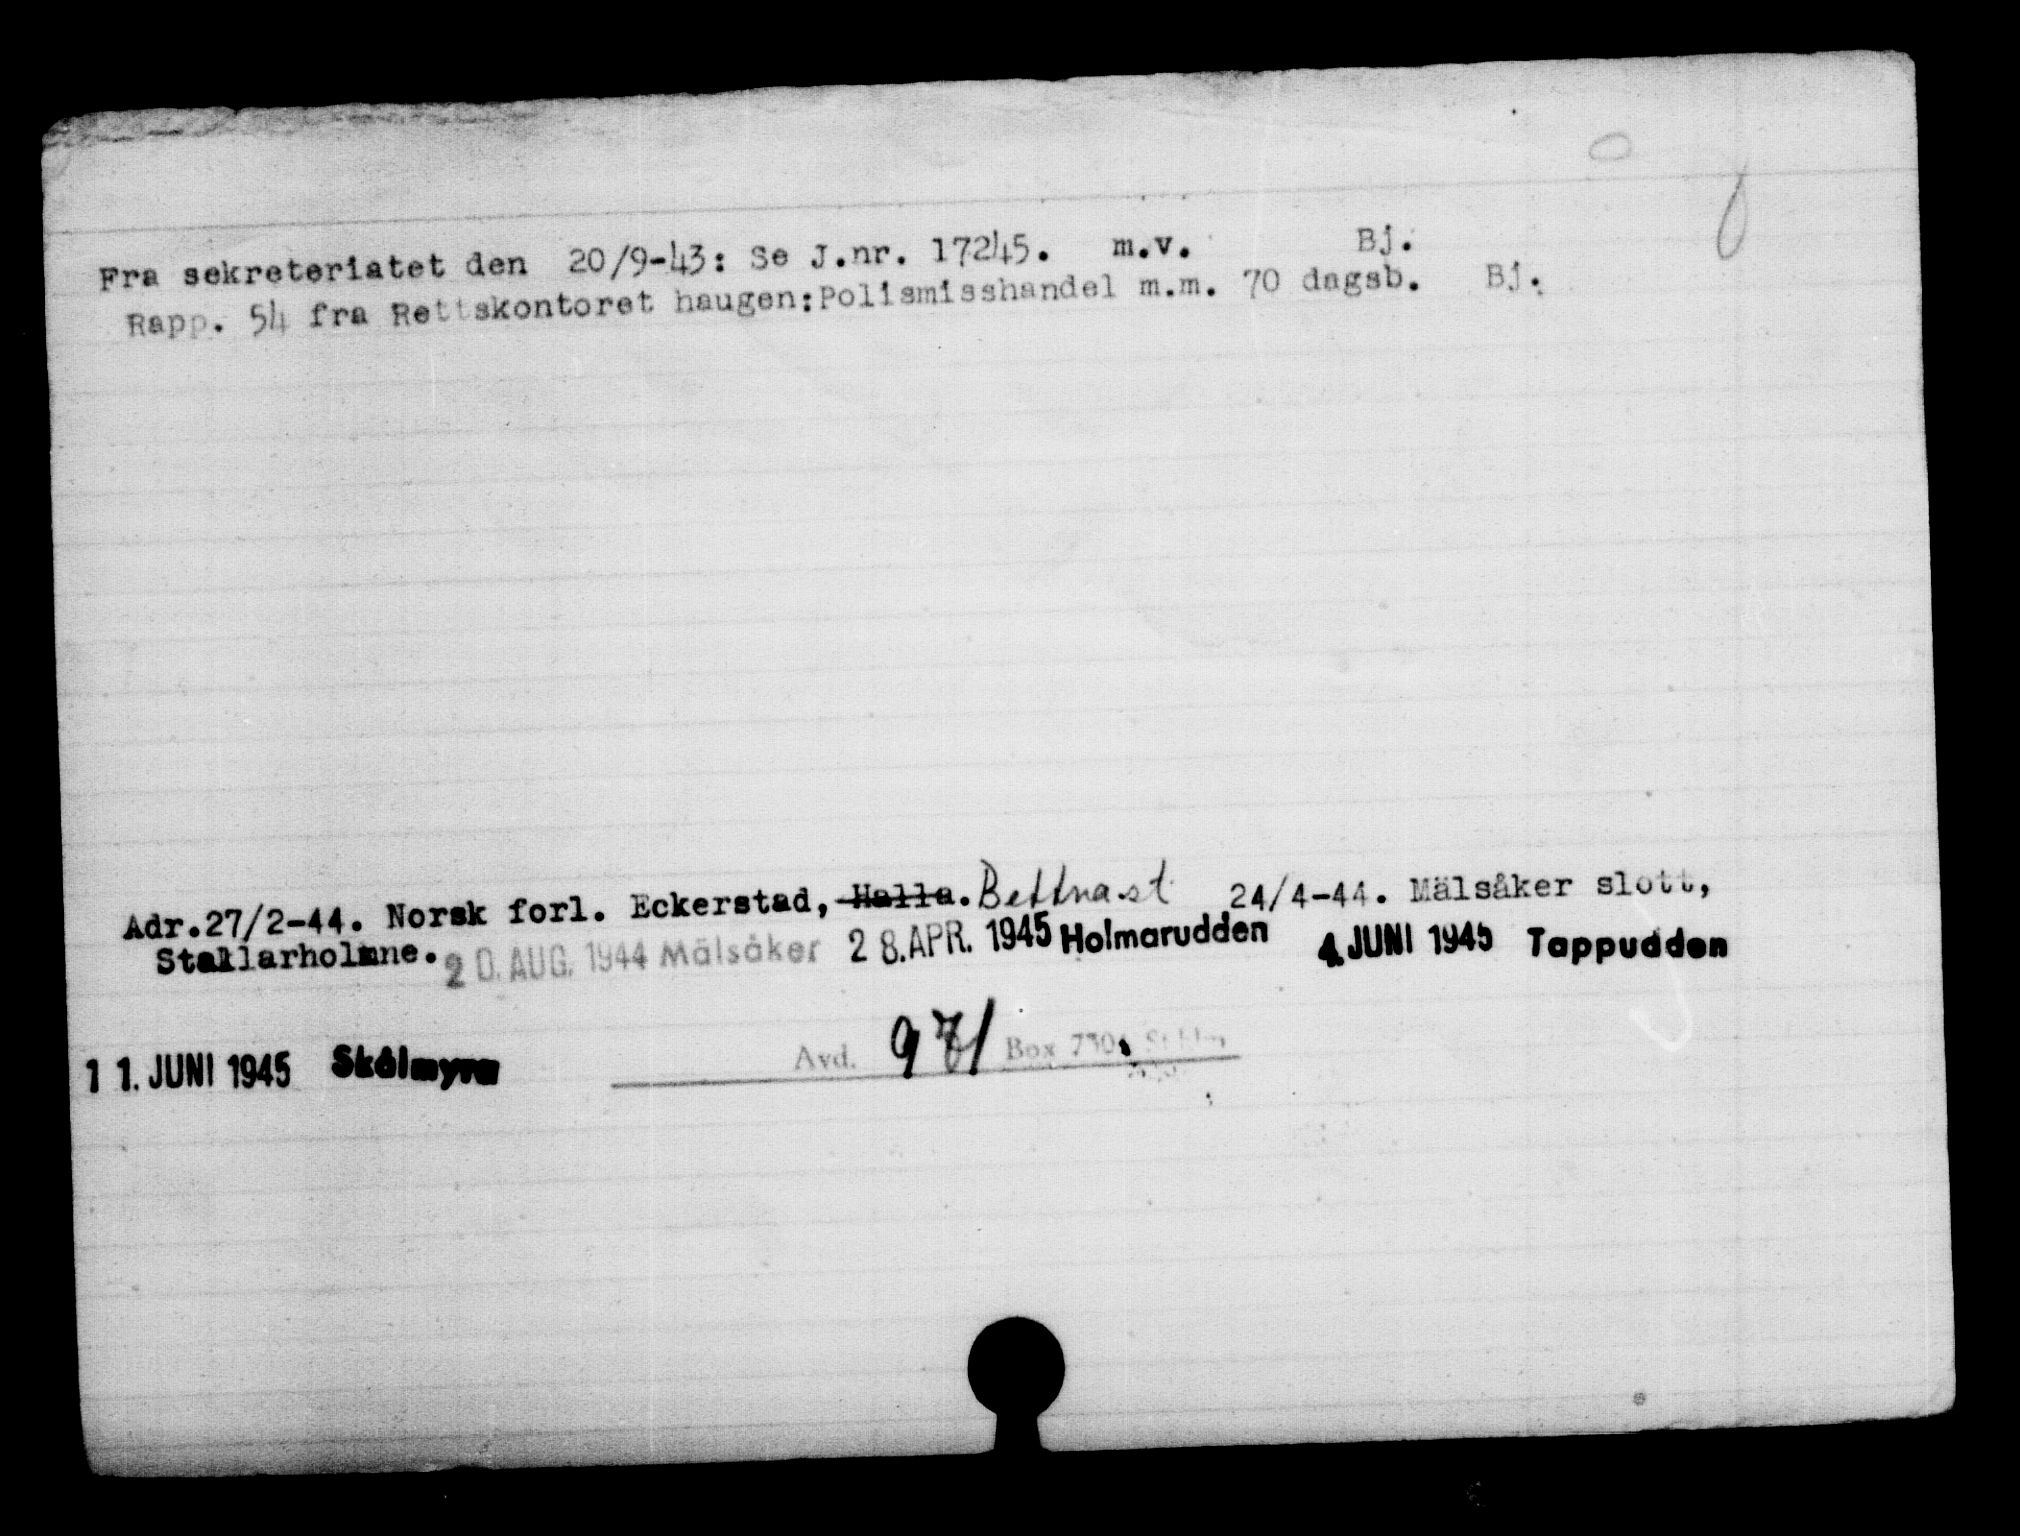 Fra sekreteriatet den 20/9-43: Se J.nr. 17245. m.v. Bj.
Rapp. 54 fra Rettskontoret haugen:Polismisshandel m.m. 70 dagsb. Bj.
Adr.27/2-44. Norsk forl. Eckerstad, Halla. Bettna st 24/4-44. Mälsåker slott,
Stallarholmne. 20. AUG. 1944 Mälsåker 28. APR. 1945 Holmarudden 4. JUNI 1945 Tappudden
11. JUNI 1945 Skålmyra Avd. 971 Box 730, Sthlm